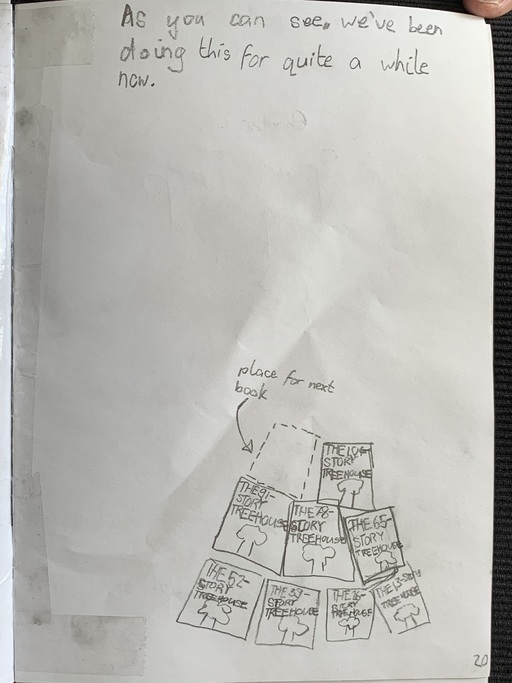 As you can see, we've been
doing this for quite a while
now.
place for next
book
THE 104-
STORY
TREEHOUSE
THE 91-
STORY
TREEHOUSE
THE 78-
STORY
TREEHOUSE
THE 65-
STORY
TREEHOUSE
THE 52-
STORY
TREEHOUSE
THE 39-
STORY
TREEHOUSE
THE 26-
STORY
TREEHOUSE
THE 13-STORY
TREEHOUSE
20